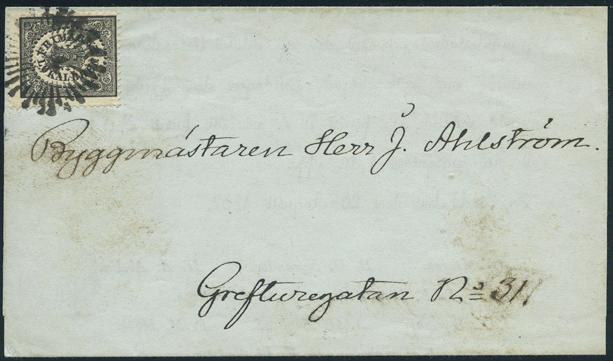 Byggmästaren Herr J. Ahlström.
Grefturegatan No 31.